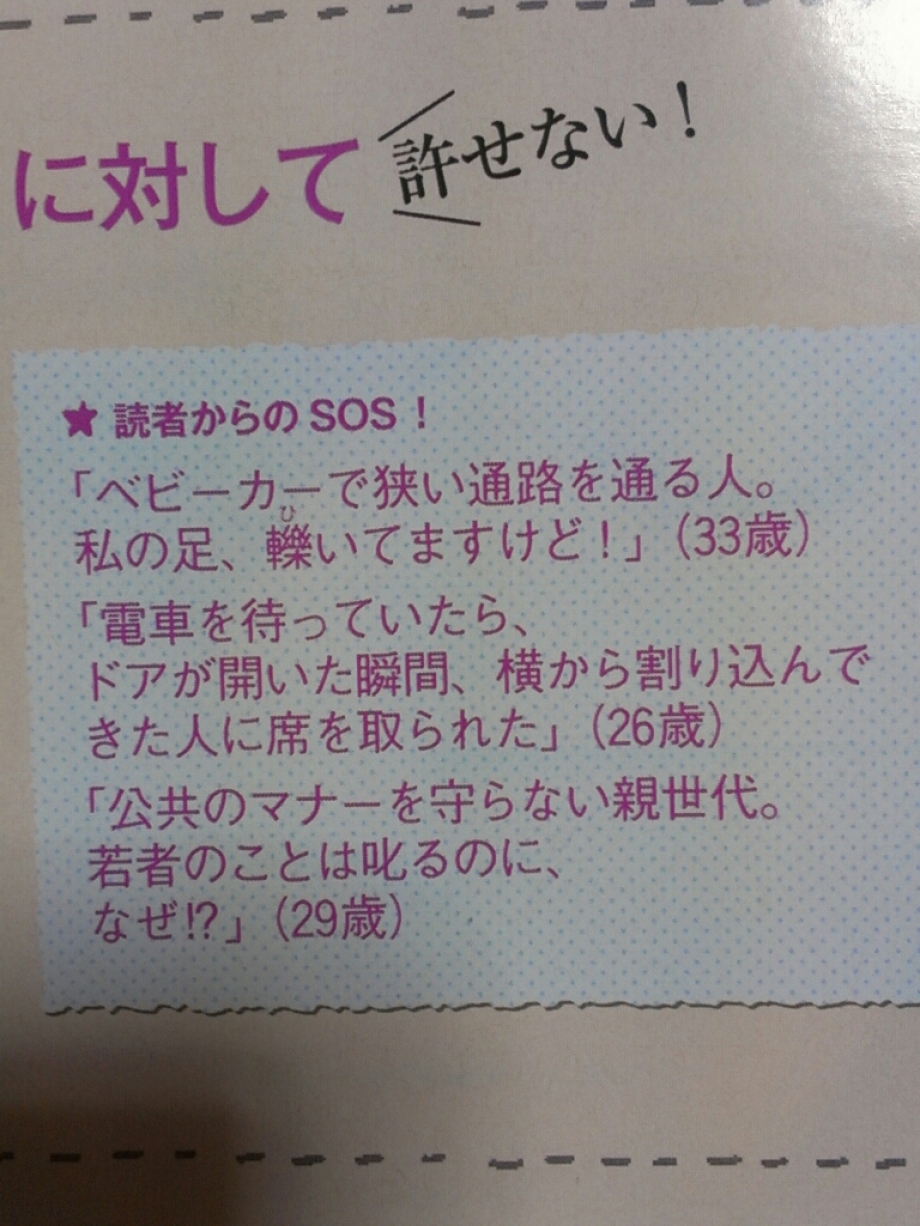 に対して許せない！
★ 読者からのSOS！
「ベビーカーで狭い通路を通る人。
私の足、轢いてますけど！」（33歳）
「電車を待っていたら、
ドアが開いた瞬間、横から割り込んで
きた人に席を取られた」（26歳）
「公共のマナーを守らない親世代。
若者のことは叱るのに、
なぜ!?」（29歳）